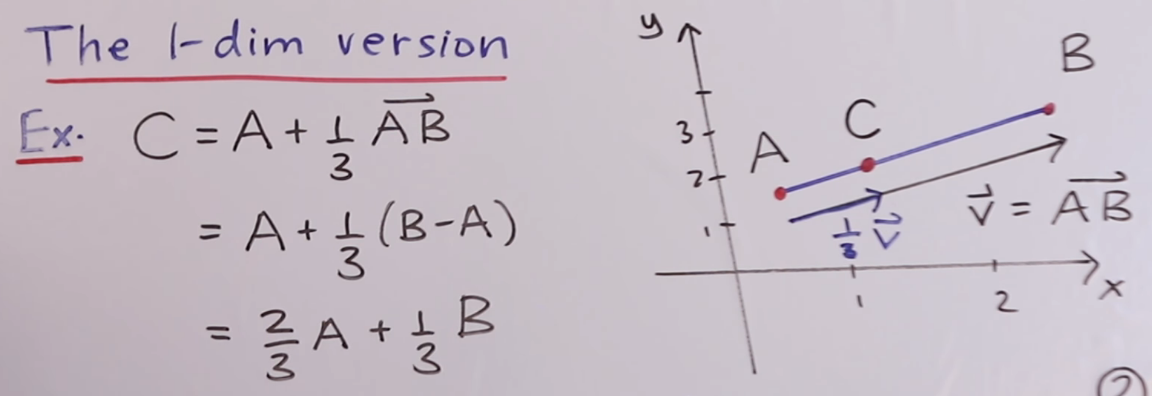 The 1-dim version
Ex. C = A + 1/3 AB→
= A + 1/3 (B-A)
= 2/3 A + 1/3 B
y
3
2
1
A
C
B
1/3 v→
v→ = AB→
1
2
x
2